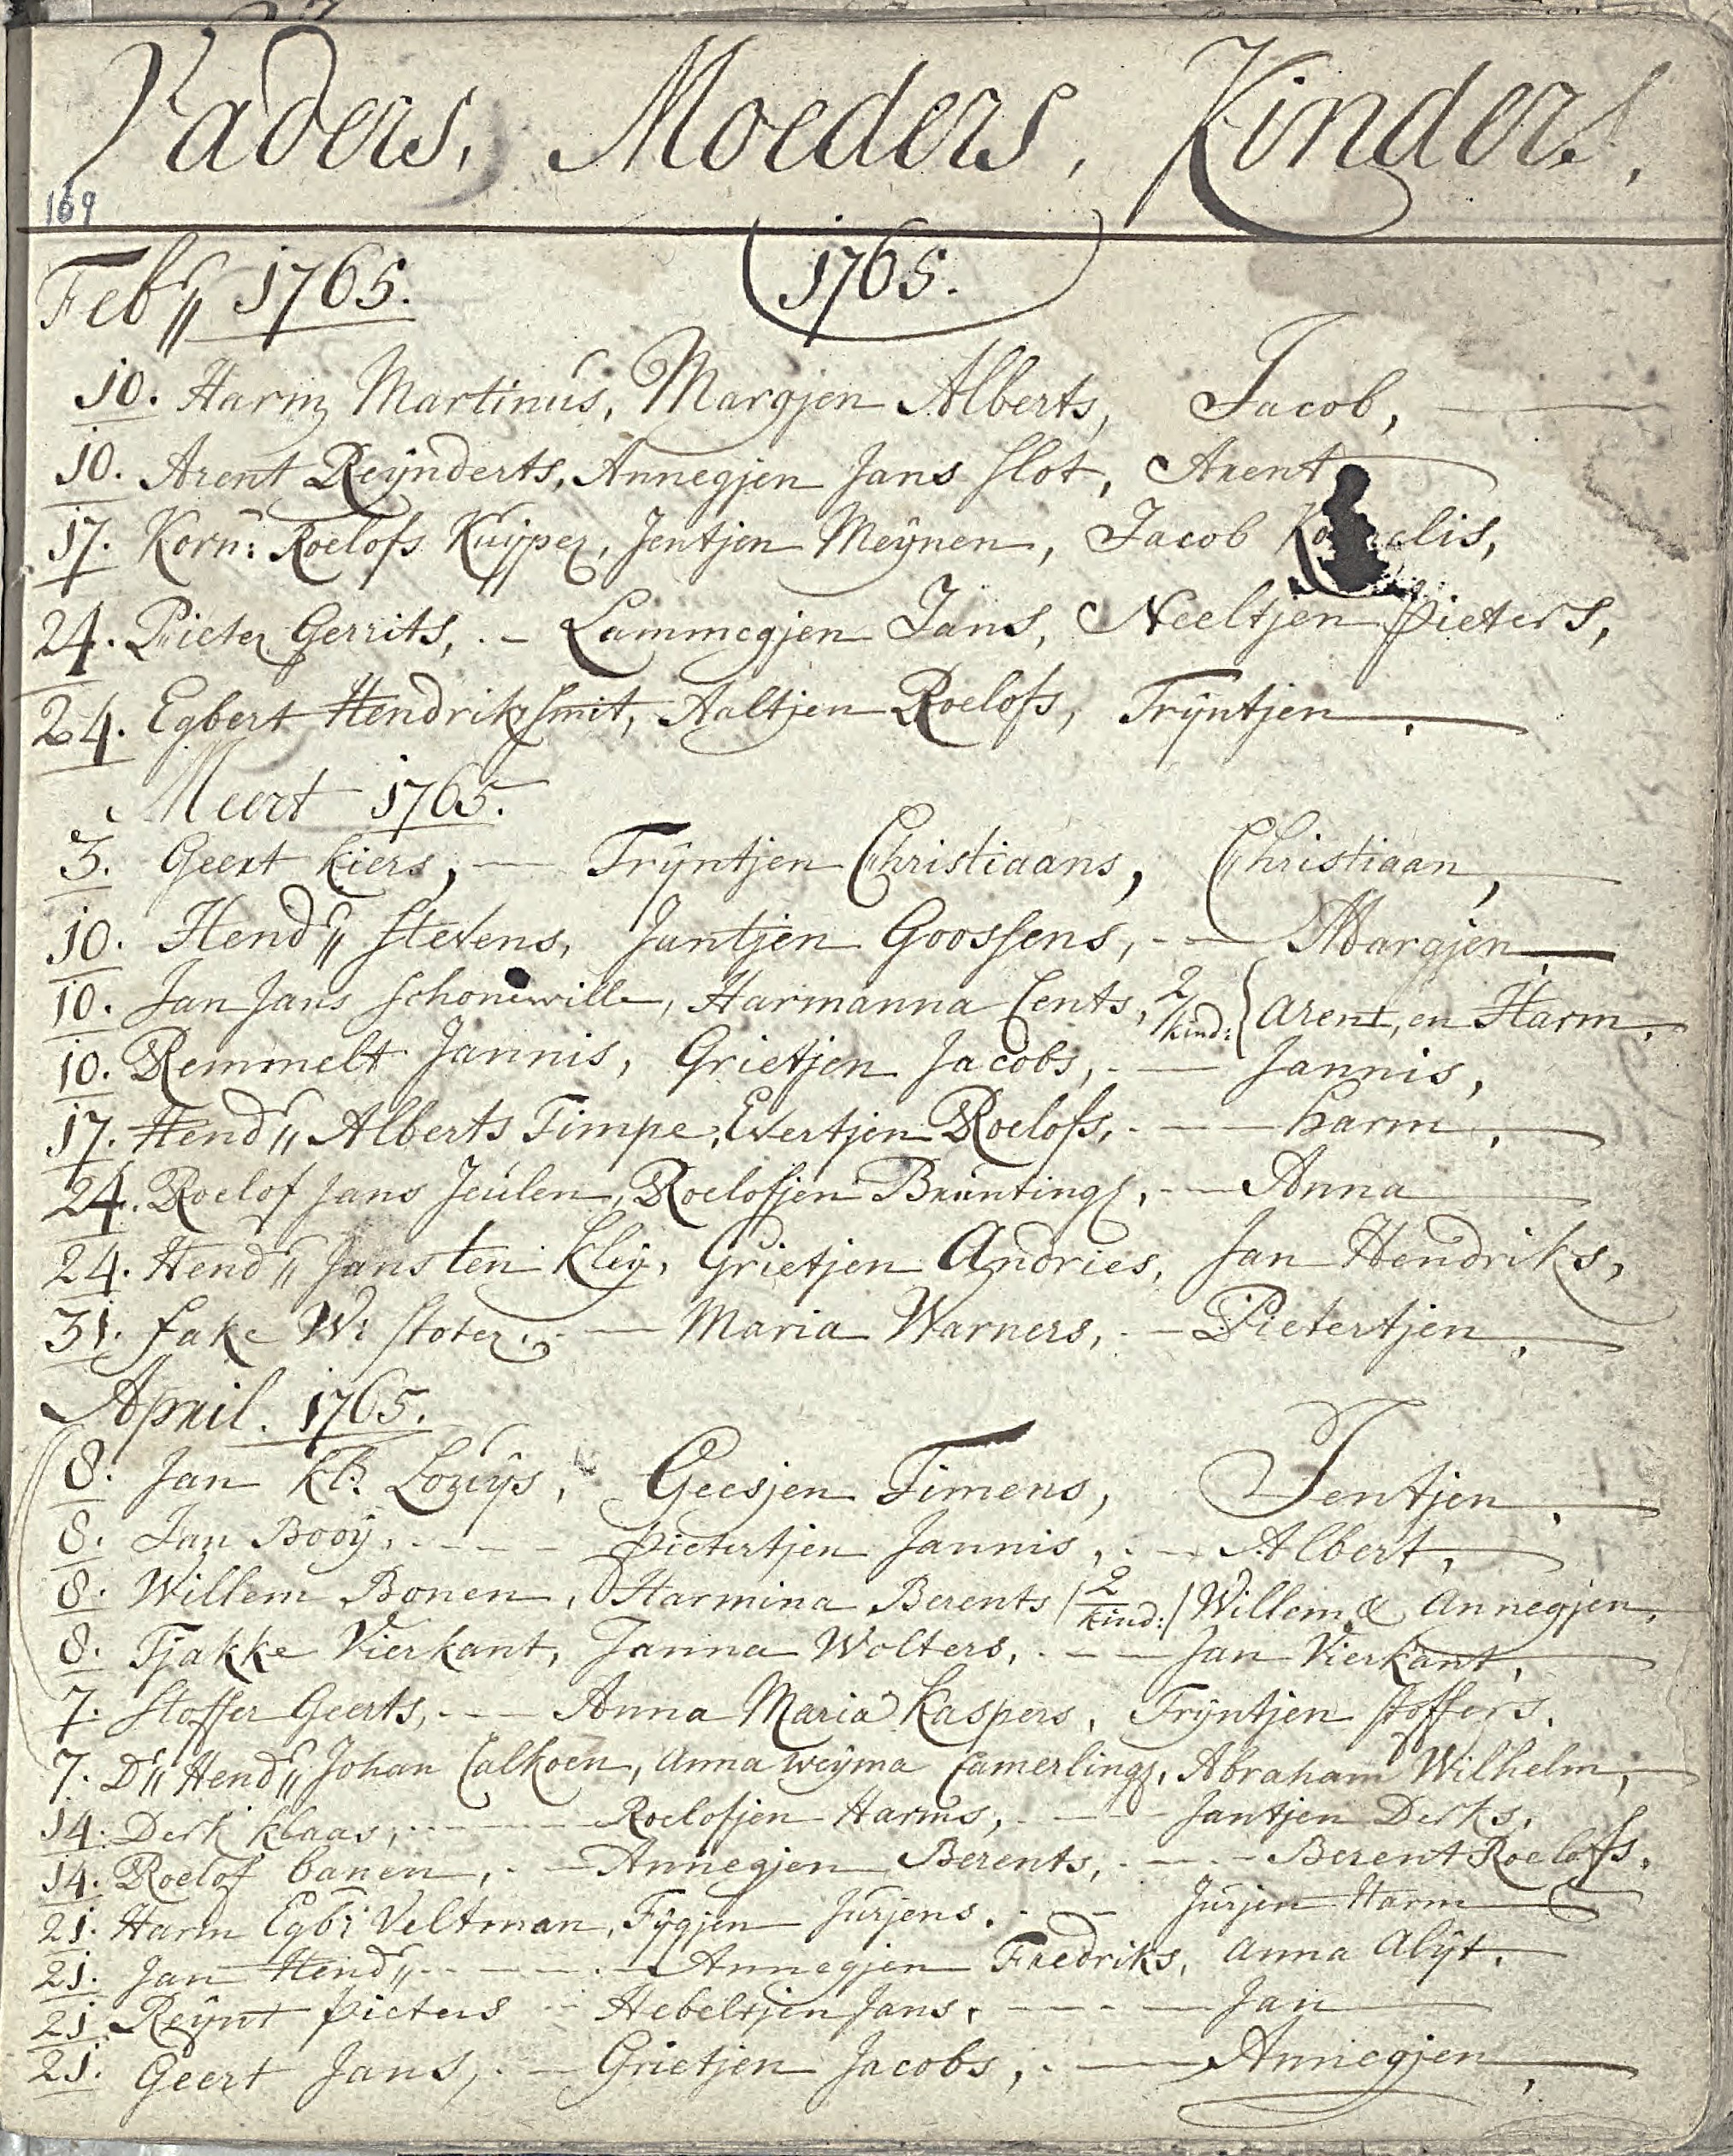 Vaders, Moeders, Kinders,
169
1765.
Feb'' 1765.
10. Harm Martinus, Margjen Alberts, Jacob,
10. Arent Reÿnderts, Annegjen Jans Slot, Arent
17. Korn: Roelofs Kuÿper, Jentjen Meÿnen, Jacob Kornelis,
24. Pieter Gerrits, Lammegjen Jans, Neeltjen Pieters,
24. Egbert Hendriks Smit, Aaltjen Roelofs, Trÿntjen,
Meert 1765.
3. Geert Kiers, Trÿntjen Christiaans, Christiaan,
10. Hend'' Stevens, Jantjen Goossens, Margjen,
10. Jan Jans Schonewille, Harmanna Cents, 2 kind: { Arent, en Harm,
10. Remmelt Jannis, Grietjen Jacobs, Jannis,
17. Hend'' Alberts Timpe, Evertjen Roelofs, harm,
24. Roelof Jans Jeulen, Roelofjen Buntings, Anna
24. Hend'' Jans ten Kleÿ, Grietjen Andries, Jan Hendriks,
31. Fake W: Stoter, Maria Warners, Pietertjen,
April. 1765.
8. Jan Kl: Louÿs, Geesjen Timens, Jentjen,
8. Jan Booÿ, Pietertjen Jannis, Albert,
8. Willem Bonen, Harmina Berents / 2 kind: / Willem & Annegjen,
8. Tjakke Vierkant, Janna Wolters, Jan Vierkant,
7. Stoffer Geerts, Anna Maria Kaspers, Trÿntjen Stoffers.
7. D'' Hend'' Johan Calkoen, Anna Weÿma Camerlings, Abraham Wilhelm,
14. Derk Klaas, Roelofjen Harms, Jantjen Derks,
14. Roelof banen, Annegjen Berents, Berent Roelofs,
21. Harm Egb: Veltman, Fÿgjen Jurjens, Jurjen Harm
21. Jan Hend'' Annegjen Fredriks, Anna Alÿt,
21. Reÿnt Pieters Hebeltjen Jans, Jan
21. Geert Jans, Grietjen Jacobs, Annegjen,